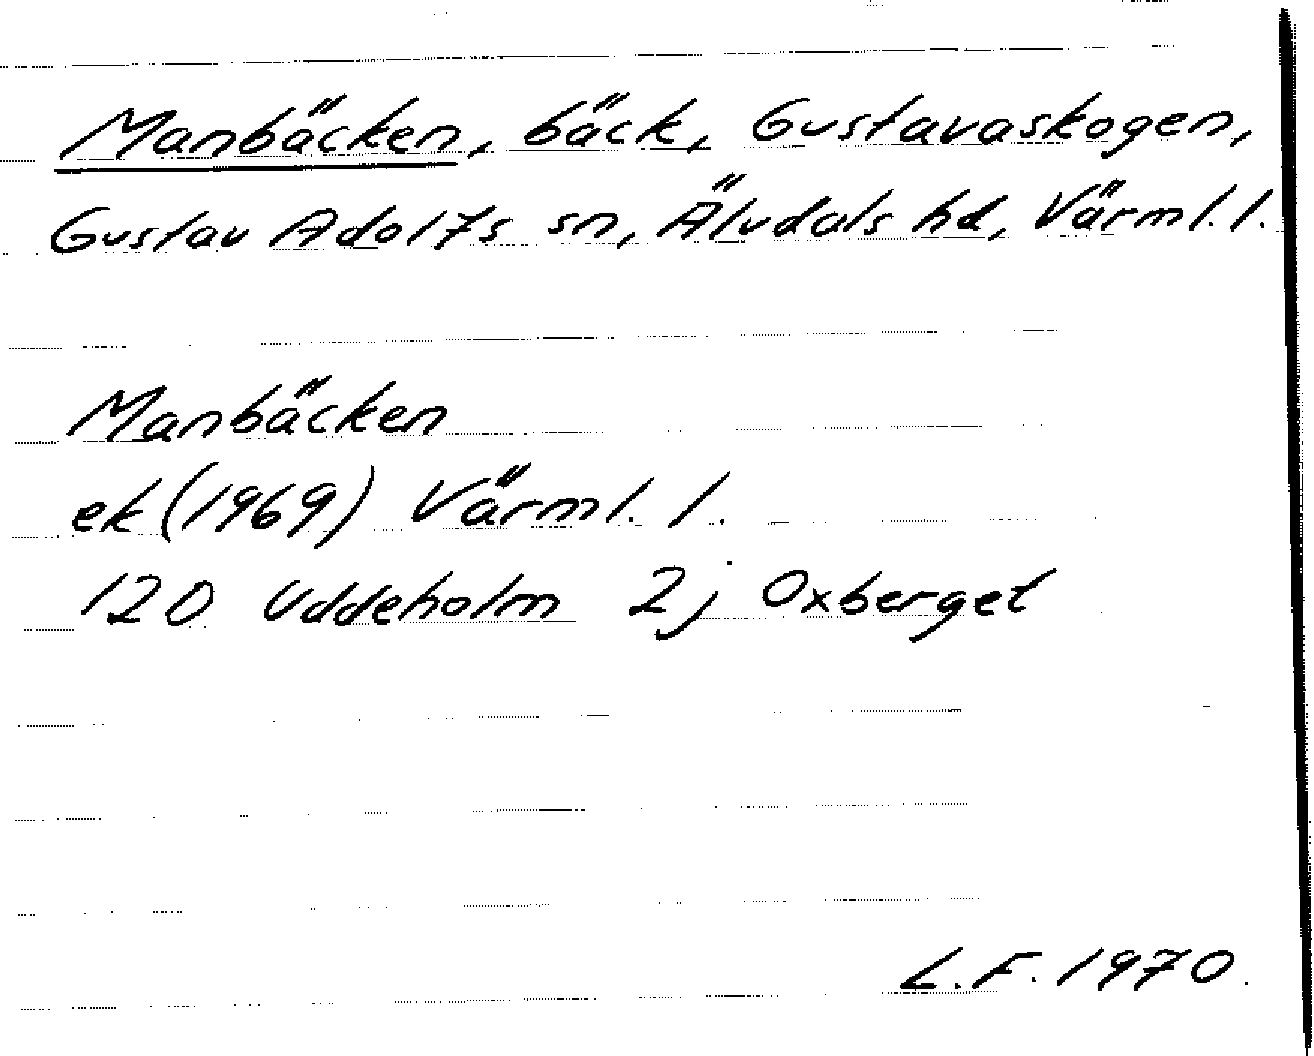 Manbäcken, bäck, Gustavaskogen,
Gustav Adolfs sn, Älvdals hd, Värml. l.
Manbäcken
ek (1969) Värml. l.
120 Uddeholm 2j Oxberget
L.F. 1970.